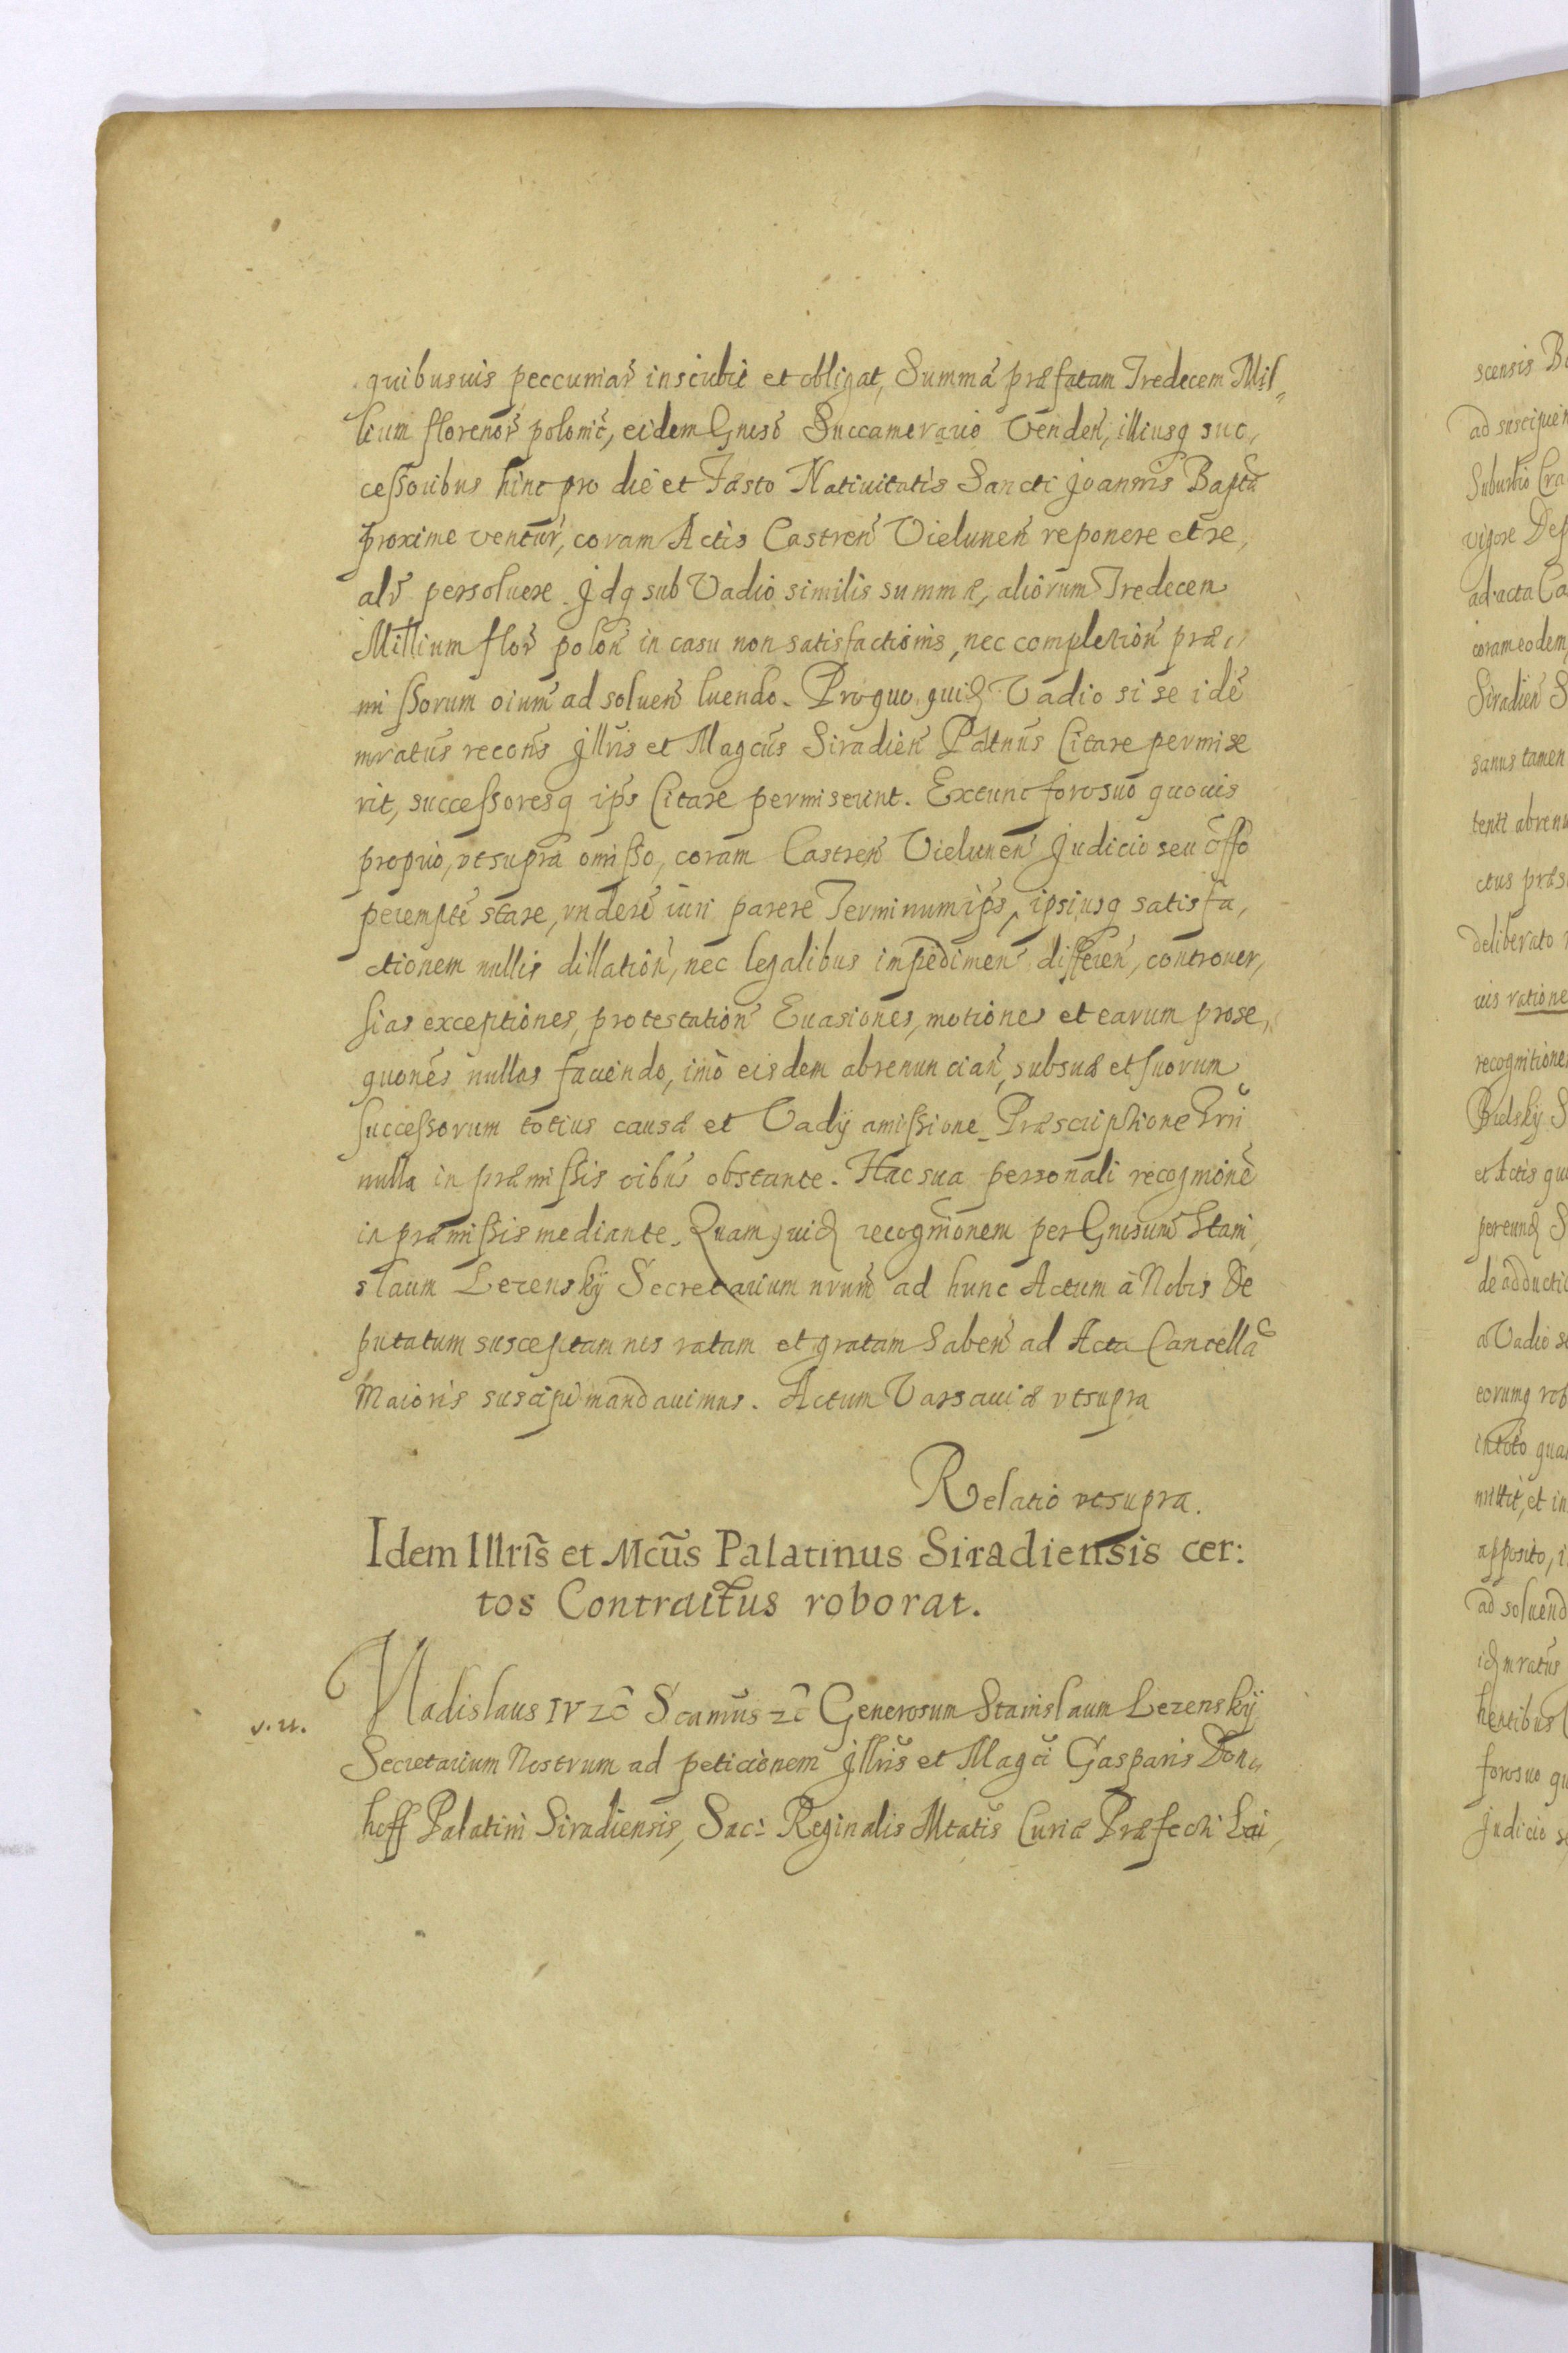 quibusuis peccuniar̃ inscribit et obligat, Summã præfatam Tredecem Mil„
lium florenor̃ polonic̃, eidem Gnoso Succamerario Venden̄, illiusq suc,
cessoribus hinc pro die et Fæsto Natiuitatis Sancti Joannis Baptæ
proxime ventur̄, coram Actis Castren̄ Vielunen̄ reponere et re,
alr̄ persoluere. Jdq sub Vadio similis summæ, aliorum Tredecen
Millium flor̄ polon̄ in casu non satisfactionis, nec completion̄ præ„
missorum oium̄ ad soluen̄ luendo. Pro quo quid Vadio si se idē
mratus recons̄ Jllris et Magcus Siradien̄ Paltnus Citare permise
rit, successoresq ips̄ Citare permiserint. Extunc foro suo quouis
proprio, vt supra omisso, coram Castren̄ Vielunen̄ Judicio seu offo
perempte stare, vndere iuri parere Terminum ips̄, ipsiusq satisfa,
ctionem nullis dillation̄, nec legalibus impedimen̄ differen̄, controuer,
sias exceptiones, protestation̄ Euasiones, motiones et earum prose,
quones nullas faciendo, imò eisdem abrenuncian̄, sub suæ et suorum
successorum totius causæ et Vadÿ amissione. Præscriptione Trri
nulla in præmissis oibus obstante. Hac sua personali recognione
in præmissis mediante. Quam quid recognionem per Gnosum Stani,
slaum Lezenskÿ Secretarium nrum ad hunc Actum à Nobis De
putatum susceptam nos ratam et gratam haben̄ ad Acta Cancellæ
Maioris suscipi mandauimus. Actum Varsauiæ vt supra
Relatio vt supra.
Idem Illris̃ et Mcũs Palatinus Siradiensis cer:
tos Contractus roborat.
v. u.
Vladislaus IV zc̃ Scamus zc̃ Generosum Stanislaum Lezenskÿ
Secretarium Nostrum ad peticionem Jllris et Magci Gasparis Don„
hoff Palatini Siradiensis, Sac: Reginalis Mtatis Curiæ Præfecti Lai,
scensis B
ad suscipien
Suburbio Cra
vigore Dep
ad acta Ca
coram eodem
Siradien̄ S
sanus tamen
tenti abrenu
ctus præs
deliberato
uis ratione
recognitione
et Actis qu
de adducti
a Vadio s
eorumq
in toto qua
mittit, et in
apposito, i
ad soluend
mratus
foro suo qu
Judicio s